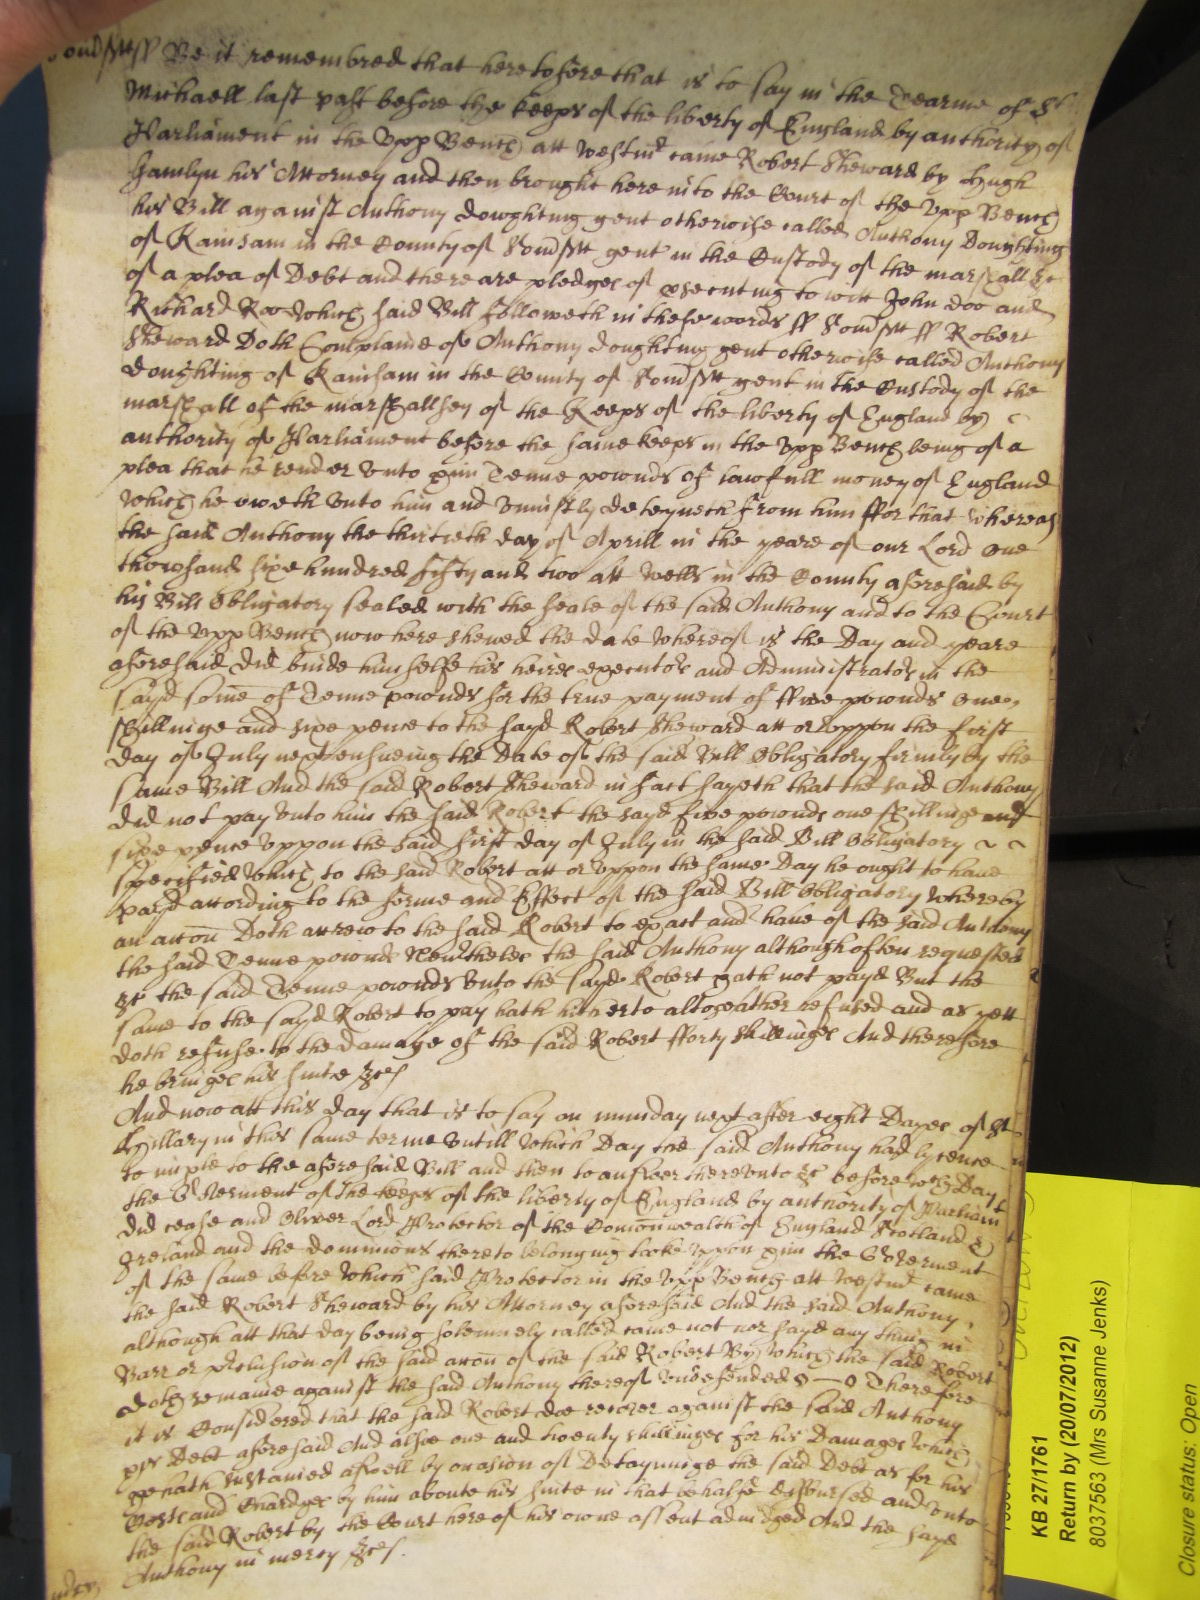 Somsett ss Be it remembred that heretofore that is to say in the Tearme of St
Michaell last past before the keeps of the liberty of England by authority of
Parliament in the Upp Bench att Westm came Robert Sheward by Hugh
Hamlyn his Attorney and then brought here into the Court of the Upp Bench
his Bill against Anthony Doughting gent otherwise called Anthony Doughting
of Kainsam in the County of Somsett gent in the Custody of the marshall &c
of a plea of Debt and there are pledges of psecuting to witt John Doo and
Richard Roo which said Bill followeth in these words ss Somsett ss Robert
Sheward Doth Complaine of Anthony Doughting gent otherwise called Anthony
Doughting of Kainsam in the County of Somsett gent in the Custody of the
marshall of the marshallsey of the Keeps of the liberty of England by
authority of Parliament before the same keeps in the Upp Bench being of a
plea that he render unto him Tenne pownds of lawfull money of England
which he oweth unto him and uniustly deteyneth from him ffor that whereas
the said Anthony the thirtieth day of Aprill in the yeare of our Lord One
thowsand sixe hundred fifty and two att Wells in the County aforesaid by
his Bill Obligatory sealed with the seale of the said Anthony and to the Court
of the Upp Bench now here shewed the date whereof is the Day and yeare
aforesaid did binde himselfe his heires executors and Administrators in the
sayd some of Tenne pownds for the true payment of ffive pownds One
shillinge and sixe pence to the sayd Robert Sheward att or uppon the first
day of July next ensueing the Date of the said Bill Obligatory firmly by the
same Bill And the said Robert Sheward in fact sayeth that the said Anthony
did not pay unto him the said Robert the sayd five pownds one shillinge and
sixe pence uppon the said first day of July in the said Bill Obligatory ~ ~
specified which to the said Robert att or uppon the same Day he ought to have
payd according to the forme and Effect of the said Bill Obligatory whereby
an accon Doth accrew to the said Robert to exact and have of the said Anthony
the said Tenne pownds Nevtheles the said Anthony although often requested
&c the said Tenne pownds unto the sayd Robert hath not payd But the
same to the sayd Robert to pay hath hitherto altogeather refused and as yett
doth refuse to the damage of the said Robert fforty shillinges And therefore
he bringes his suite &c
And now att this day that is to say on munday next after eight Dayes of St
Hillary in this same terme untill which Day the said Anthony had lycence
to imple to the aforesaid Bill and then to answer thereunto &c before wch Day
the Govverment of the keeps of the liberty of England by authority of Parliam
did cease and Oliver Lord Protector of the Comonwealth of England Scotland &
Ireland and the dominions thereto belonging tooke uppon him the Goverment
of the same before which said Protector in the Upp Bench att Westm came
the said Robert Sheward by his Attorney aforesaid And the said Anthony
although att that day being solemnely called came not nor sayd any thing in
Barr or preclusion of the said accon of the said Robert By which the said Robert
doth remaine against the said Anthony thereof undefended Therefore
it is Considered that the said Robert doe recover against the said Anthony
his Debt aforesaid And alsoe one and twenty shillinges for his Damages which
he hath sustained aswell by occasion of Detayninge the said Debt as for his
Costs and Chardges by him aboute his suite in that behalfe disbursed and unto
the said Robert by the Court here of his owne assent adiudged And the sayd
Anthony in mercy &c
KB 27/1761
Return by (20/07/2012)
8037563 (Mrs Susanne Jenks)
Closure status: Open